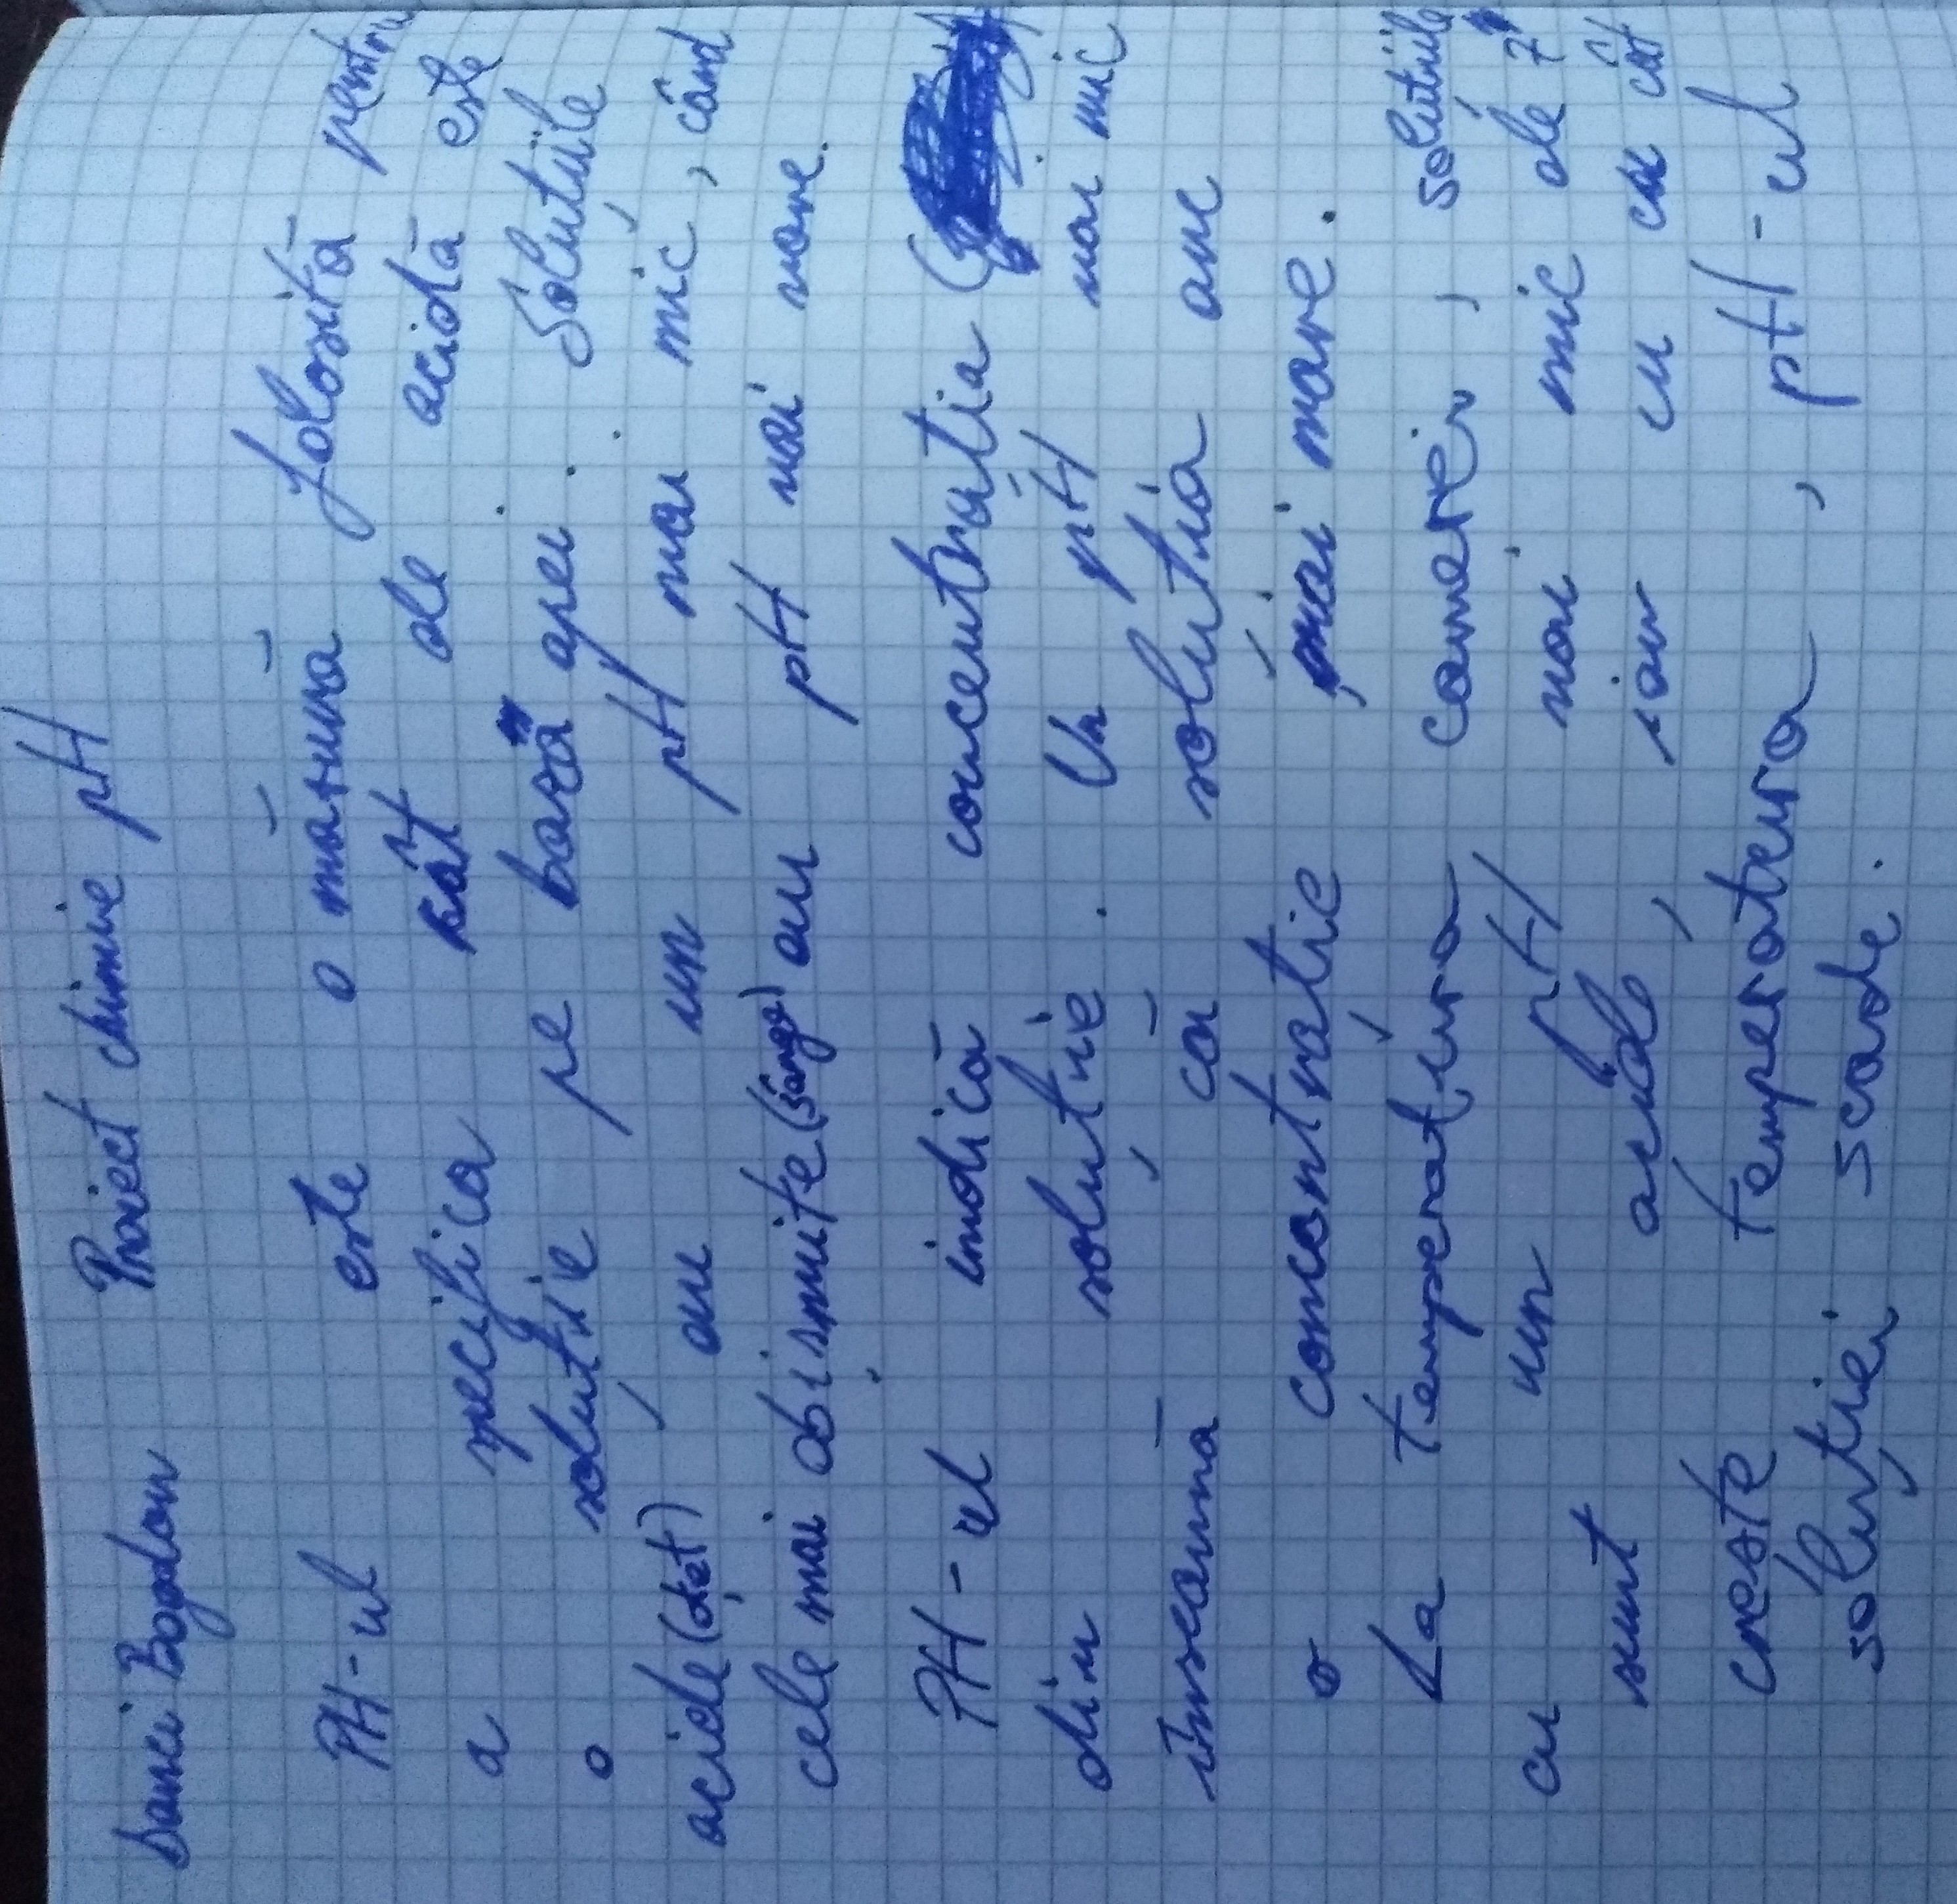 Danci Bogdan Proiect chimie pH
PH-ul este o măsură folosită pentru
a specifica cât de acidă este
o soluție pe bază apei. Soluțiile
acide (oțet) au un pH mai mic, când
cele mai obișnuite (sânge) au pH mai mare.
PH-ul indică concentrația
din soluție. Un pH mai mic
înseamnă că soluția are
o concontrație mai mare.
La temperatura camerei, soluțiile
cu un pH mai mic de 7
sunt acide, iar cu cu cât
creste temperateura, pH-ul
soluției scade.